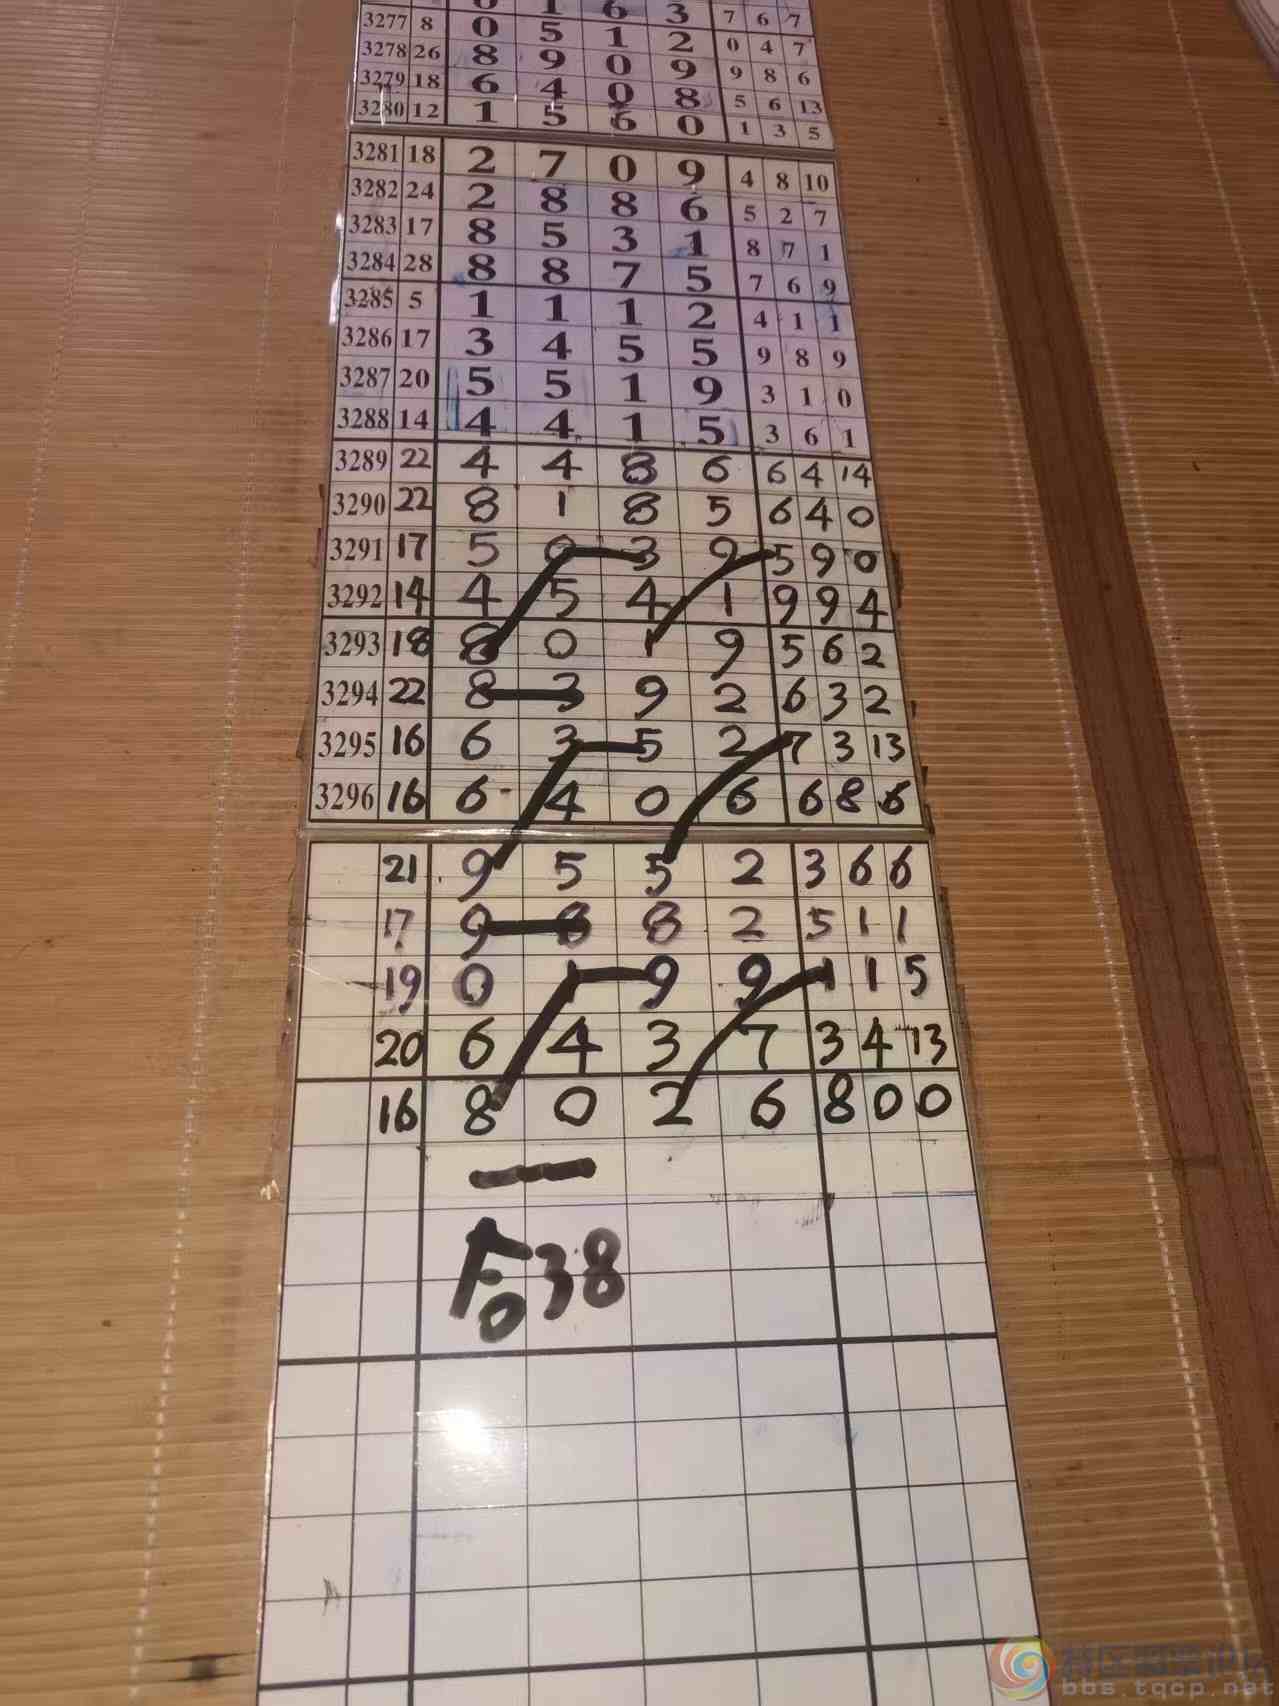 1 6 3 7 6 7
3277 8 0 5 1 2 0 4 7
3278 26 8 9 0 9 9 8 6
3279 18 6 4 0 8 5 6 13
3280 12 1 5 6 0 1 3 5
3281 18 2 7 0 9 4 8 10
3282 24 2 8 8 6 5 2 7
3283 17 8 5 3 1 8 7 1
3284 28 8 8 7 5 7 6 9
3285 5 1 1 1 2 4 1 1
3286 17 3 4 5 5 9 8 9
3287 20 5 5 1 9 3 1 0
3288 14 4 4 1 5 3 6 1
3289 22 4 4 8 6 6 4 14
3290 22 8 1 8 5 6 4 0
3291 17 5 0 3 9 5 9 0
3292 14 4 5 4 1 9 9 4
3293 18 8 0 1 9 5 6 2
3294 22 8 3 9 2 6 3 2
3295 16 6 3 5 2 7 3 13
3296 16 6 4 0 6 6 8 6
21 9 5 5 2 3 6 6
17 9 8 2 5 1 1
19 0 1 9 9 1 1 5
20 6 4 3 7 3 4 13
16 8 0 2 6 8 0 0
38
bbs.tqcp.net